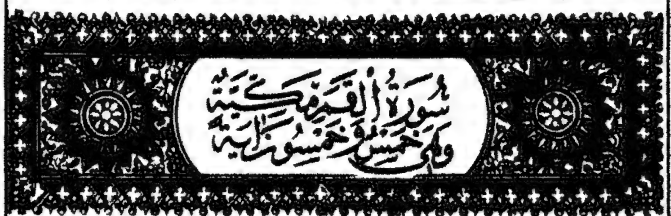 سُورَةُ ٱلْقَمَرِ مَكِّيَّةٌ
وَهِيَ خَمْسٌ وَخَمْسُونَ آيَةً